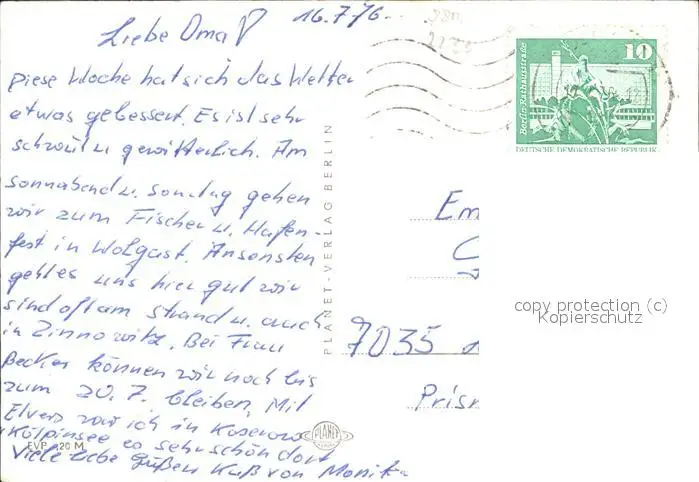 16.7.76.
Liebe Oma!
Diese Woche hat sich das Wetter
etwas gebessert. Es ist sehr
schwül u. gewitterlich. Am
Sonnabend u. Sonntag gehen
wir zum Fischer u. Hafen-
fest in Wolgast. Ansonsten
geht es uns hier gut wir
sind oft am Strand u. auch
in Zinnowitz. Bei Frau
Becker können wir noch bis
zum 20.7. bleiben. Mit
Elvers war ich in Koserow
Kölpinsee es sehr schön dort
Viele liebe Grüßen Kuß von Monika
EVP 20 M
PLANET-VERLAG BERLIN
PLANET
10
Berlin, Rathausstraße
DEUTSCHE DEMOKRATISCHE REPUBLIK
Em
7035
Prisn
copy protection (c)
Kopierschutz